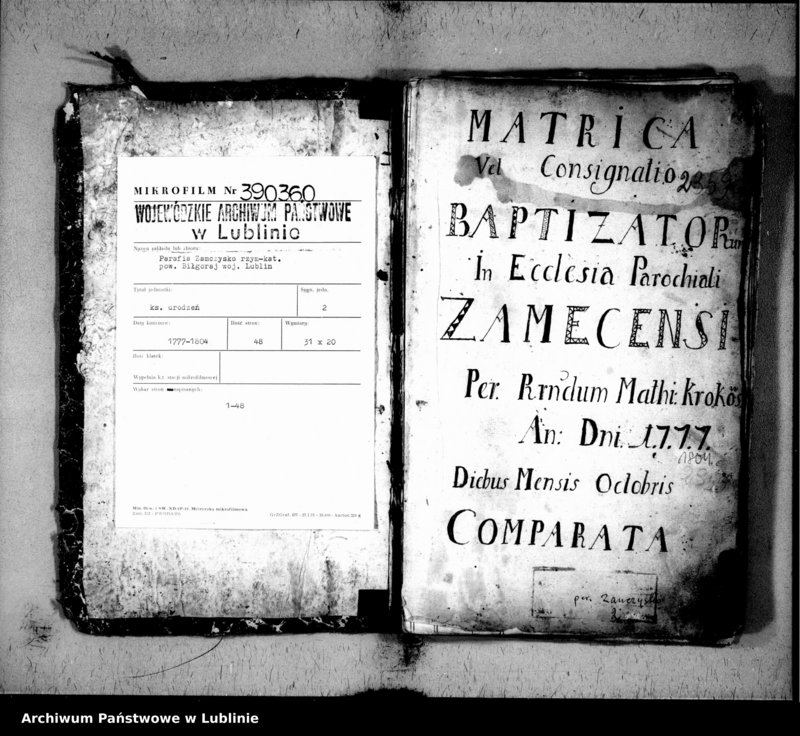 MIKROFILM Nr 390360
WOJEWÓDZKIE ARCHIWUM PAŃSTWOWE
w Lublinie
Nazwa zakładu lub zbioru:
Parafia Zamczysko rzym-kat.
pow. Biłgoraj woj. Lublin
Tytuł jednostki:
Sygn. jedn.
ks. urodzeń
2
Daty krańcowe:
Ilość stron:
Wymiary:
1777-1804
48
31 x 20
Ilość klatek:
Wypełnia kr. stacji mikrofilmowej
Wykaz stron
1-48
MATRICA
Vel Consignatio
BAPTIZATORum
in Ecclesia Parochiali
ZAMECENSI
Per. Rrndum Mathi: Krokos
An: Dni. 1.7.7.7.
1804
Diebus Mensis Octobris
COMPARATA
par. Zamczysko
Archiwum Państwowe w Lublinie